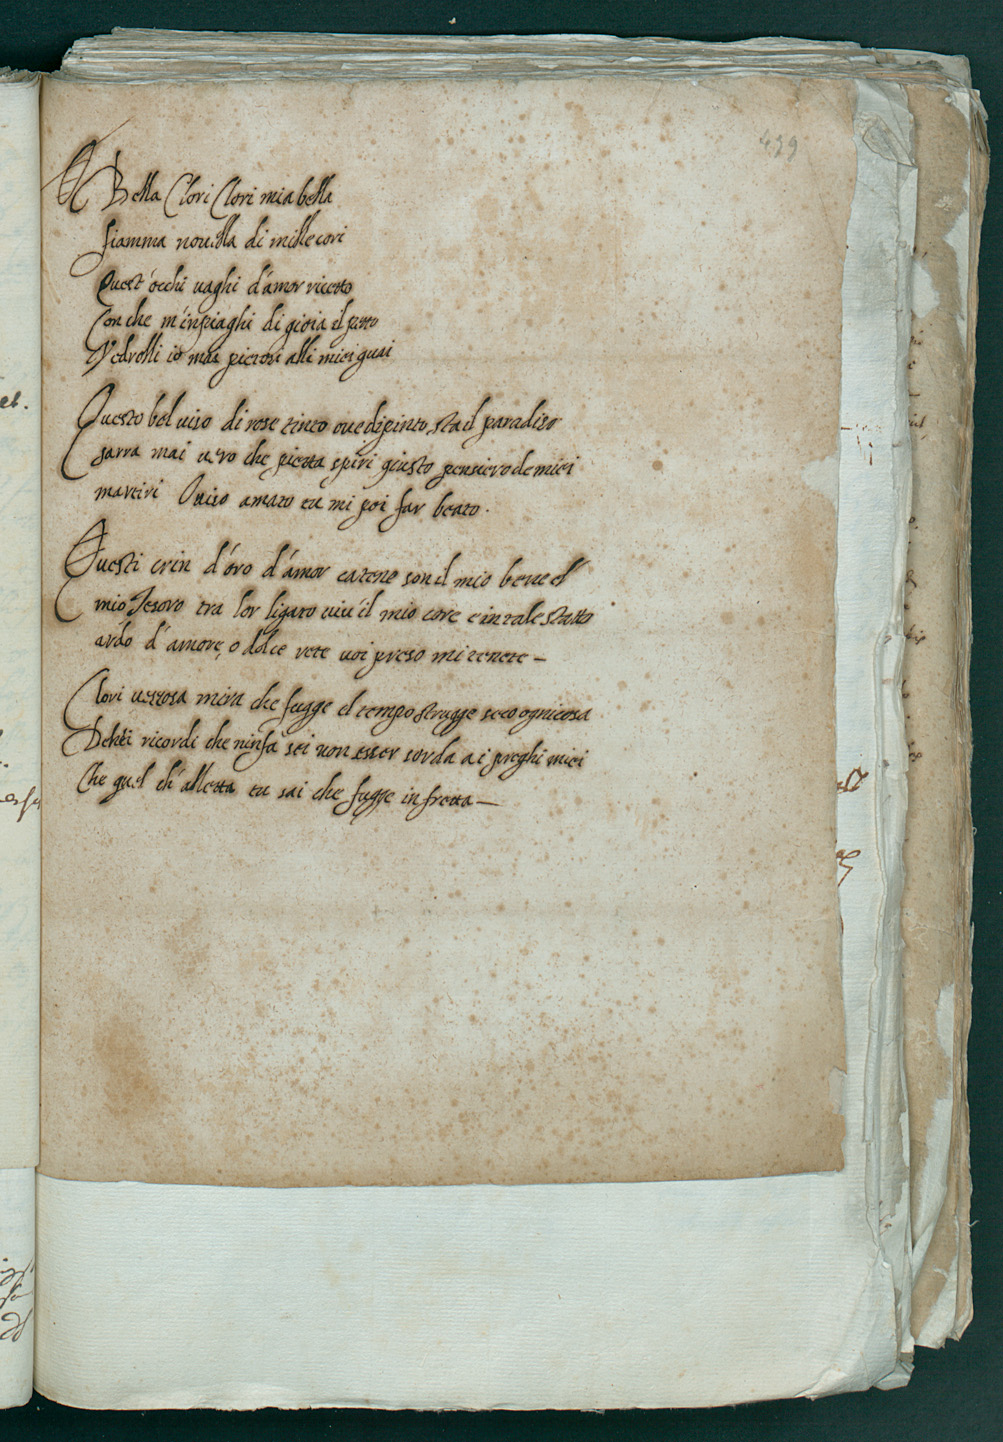 429
O Bella Clori Clori mia bella
fiamma nouella di mille cori
Quest'occhi uaghi d'amor ricetto
Con che m'inpiaghi di gioia il petto
Vedrolli io mai pietosi alli miei guai
Questo bel uiso di rose tinto oue dipinto sta il paradiso
sarra mai uero che pietta spiri giusto pensiero de miei
martiri O uiso amato tu mi poi far beato.
Questi crin d'oro d'amor catene son il mio bene el
mio Tesoro tra lor ligato uiu'il mio core e in tale statto
ardo d'amore, o dolce rete uoi preso mi tenete –
Clori uezzosa mira che fugge el tempo strugge seco ogni cosa
Dehti ricordi che ninfa sei non esser sorda a i preghi miei
Che quel ch'alletta tu sai che fugge in fretta –